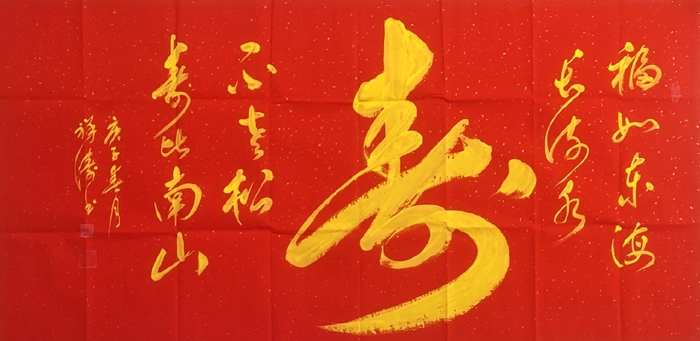 福如东海
长流水
寿
寿比南山
不老松
庚子年月
祥涛书